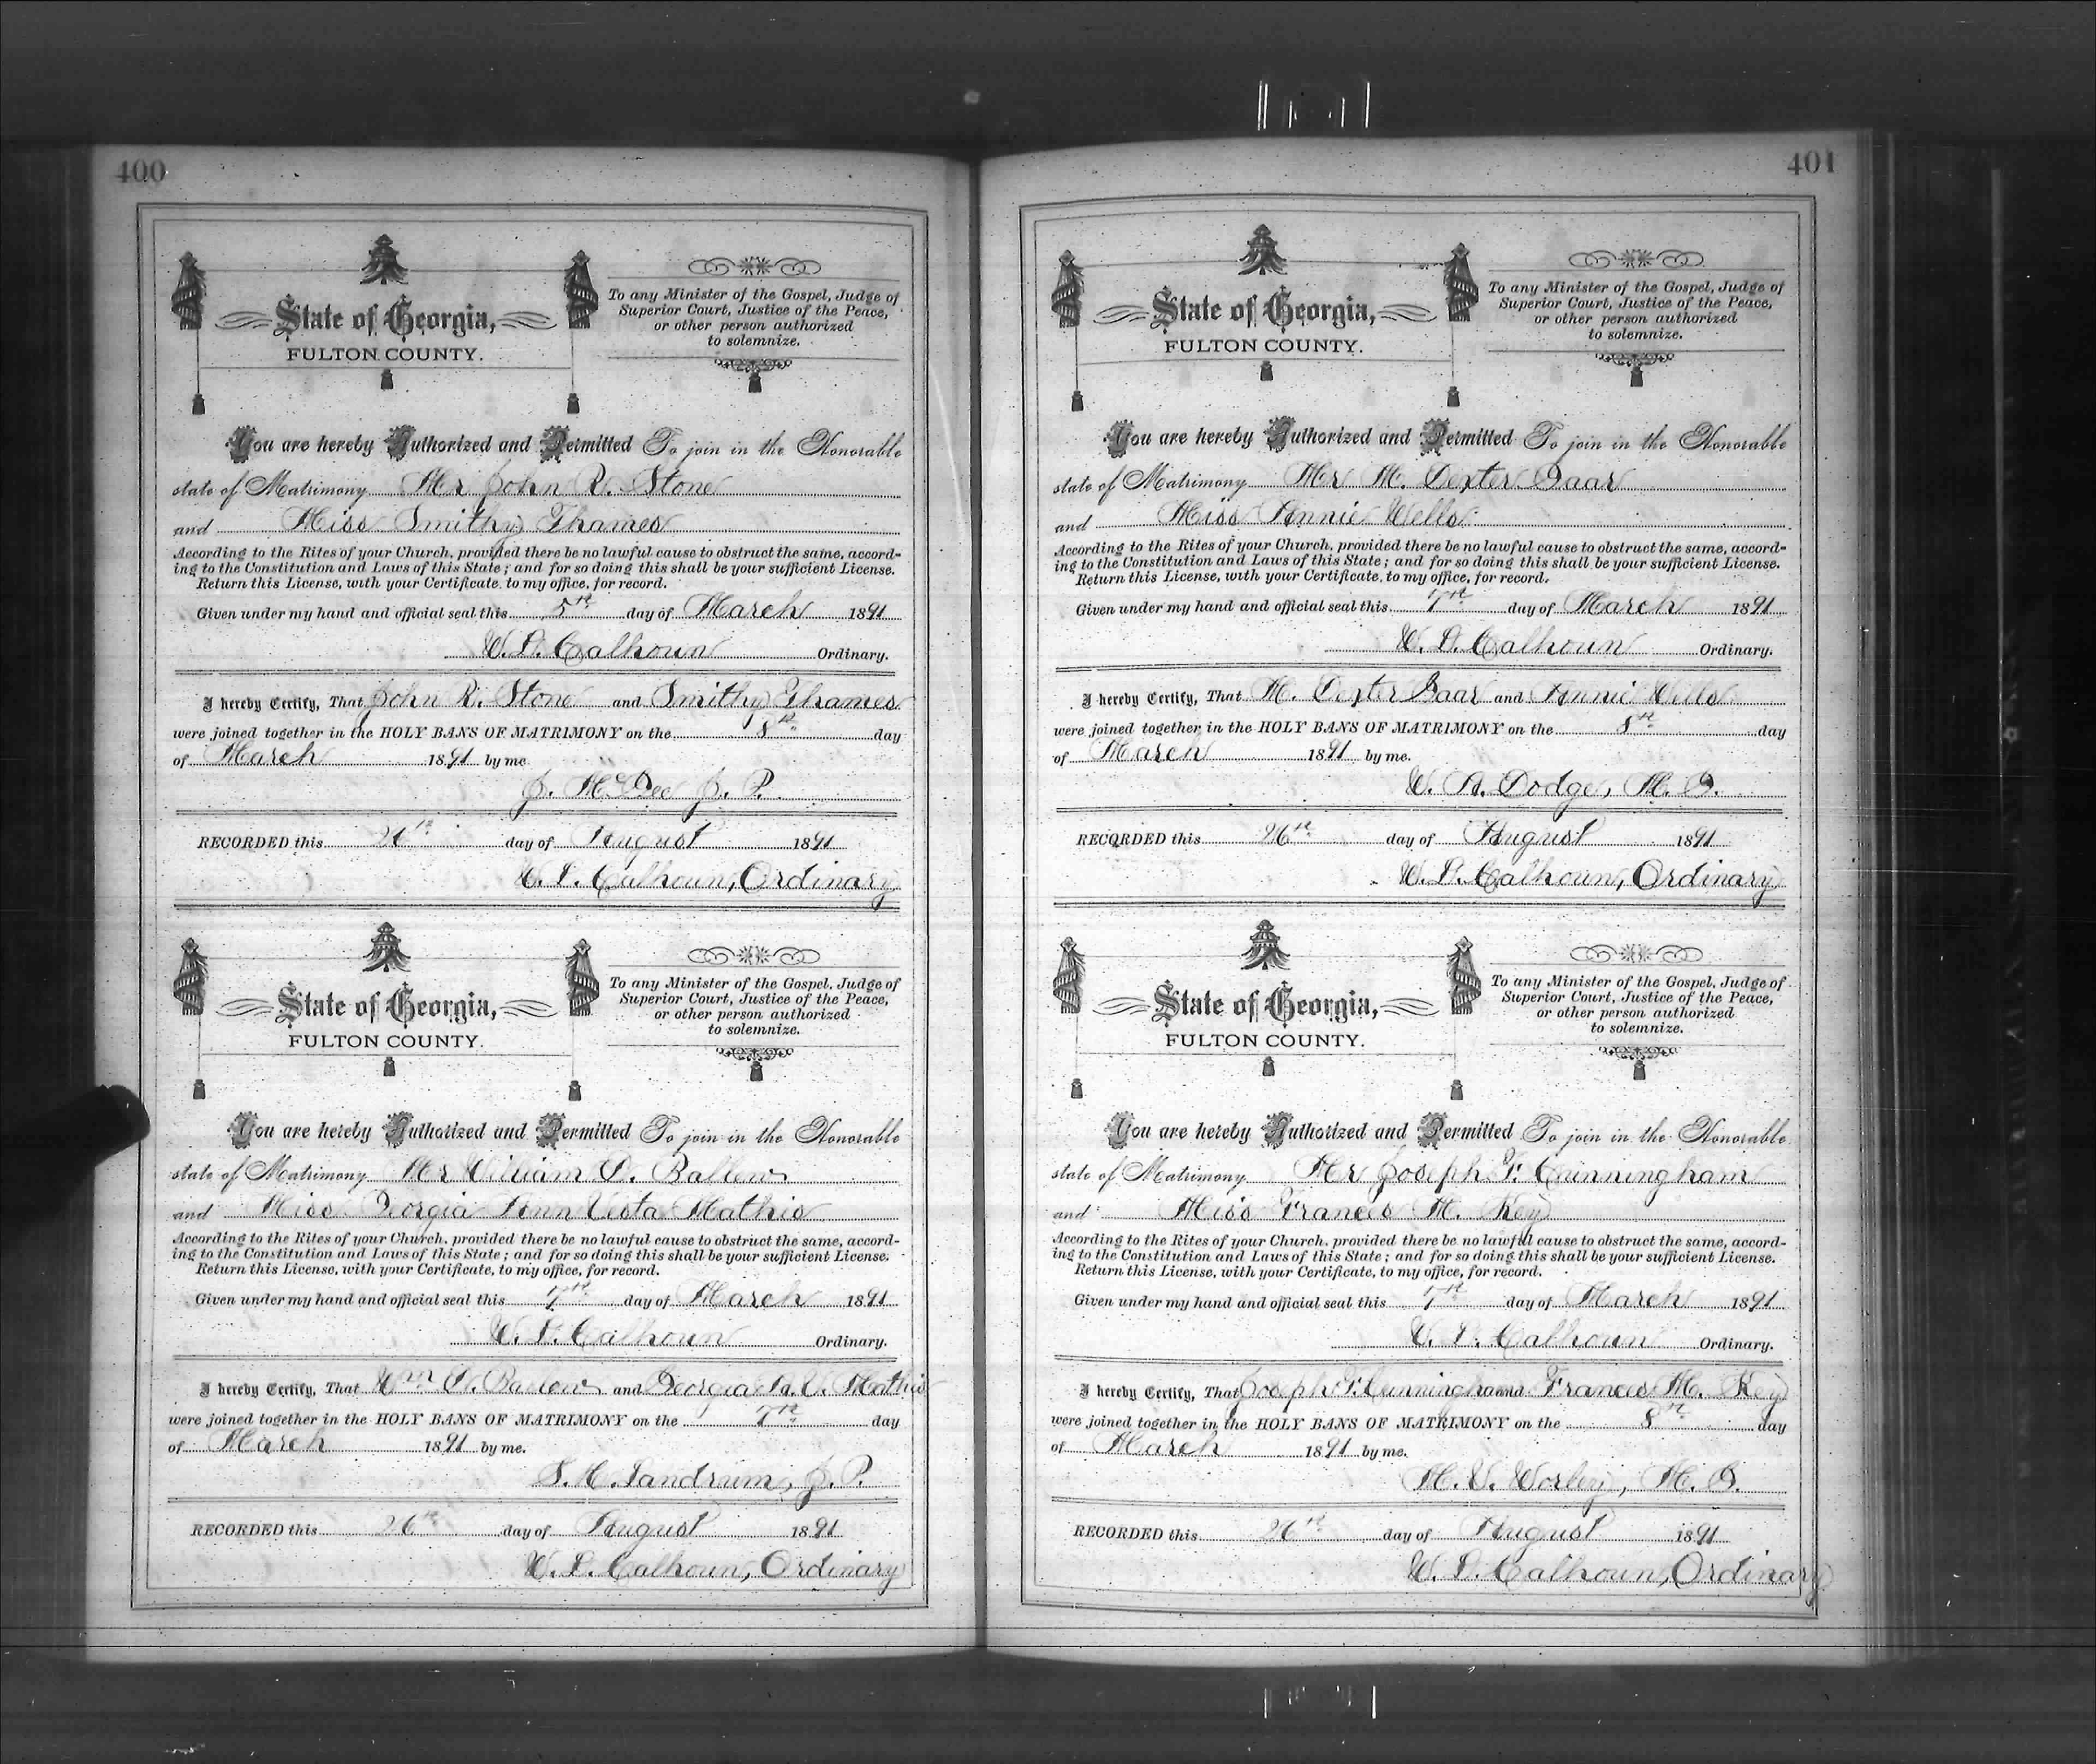 400
State of Georgia,
FULTON COUNTY.
To any Minister of the Gospel, Judge of
Superior Court, Justice of the Peace,
or other person authorized
to solemnize.
You are hereby Authorized and Permitted To join in the Honorable
state of Matrimony Mr John R. Stone
and Miss Smithy Thames
According to the Rites of your Church, provided there be no lawful cause to obstruct the same, accord-
ing to the Constitution and Laws of this State; and for so doing this shall be your sufficient License.
Return this License, with your Certificate, to my office, for record.
Given under my hand and official seal this 5th day of March 1891
W. L. Calhoun Ordinary.
I hereby Certify, That John R. Stone and Smithy Thames
were joined together in the HOLY BANS OF MATRIMONY on the 8th day
of March 1891 by me.
J. McGee J. P.
RECORDED this 26th day of August 1891
W. L. Calhoun, Ordinary
State of Georgia,
FULTON COUNTY.
To any Minister of the Gospel, Judge of
Superior Court, Justice of the Peace,
or other person authorized
to solemnize.
You are hereby Authorized and Permitted To join in the Honorable
state of Matrimony Mr William D. Ballew
and Miss Georgia Ann Vesta Mathis
According to the Rites of your Church, provided there be no lawful cause to obstruct the same, accord-
ing to the Constitution and Laws of this State; and for so doing this shall be your sufficient License.
Return this License, with your Certificate, to my office, for record.
Given under my hand and official seal this 7th day of March 1891
W. L. Calhoun Ordinary.
I hereby Certify, That Wm D. and Georgia A. V. Mathis
were joined together in the HOLY BANS OF MATRIMONY on the 7th day
of March 1891 by me.
S. H. Landrum, J. P.
RECORDED this 26th day of August 1891
W. L. Calhoun, Ordinary
401
State of Georgia,
FULTON COUNTY.
To any Minister of the Gospel, Judge of
Superior Court, Justice of the Peace,
or other person authorized
to solemnize.
You are hereby Authorized and Permitted To join in the Honorable
state of Matrimony Mr M. Dexter Gaar
and Miss Annie Wells
According to the Rites of your Church, provided there be no lawful cause to obstruct the same, accord-
ing to the Constitution and Laws of this State; and for so doing this shall be your sufficient License.
Return this License, with your Certificate, to my office, for record.
Given under my hand and official seal this 7th day of March 1891
W. L. Calhoun Ordinary.
I hereby Certify, That M. Dexter Gaar and Annie Wells
were joined together in the HOLY BANS OF MATRIMONY on the 8th day
of March 1891 by me.
W. A. Dodge, M. G.
RECORDED this 26th day of August 1891
W. L. Calhoun, Ordinary
State of Georgia,
FULTON COUNTY.
To any Minister of the Gospel, Judge of
Superior Court, Justice of the Peace,
or other person authorized
to solemnize.
You are hereby Authorized and Permitted To join in the Honorable
state of Matrimony Mr Joseph F. Cunningham
and Miss Frances M. Key
According to the Rites of your Church, provided there be no lawful cause to obstruct the same, accord-
ing to the Constitution and Laws of this State; and for so doing this shall be your sufficient License.
Return this License, with your Certificate, to my office, for record.
Given under my hand and official seal this 7th day of March 1891
W. L. Calhoun Ordinary.
I hereby Certify, That Joseph F. Cunningham and Frances M. Key
were joined together in the HOLY BANS OF MATRIMONY on the 8th day
of March 1891 by me.
M. V. Worley, M. G.
RECORDED this 26th day of August 1891
W. L. Calhoun, Ordinary